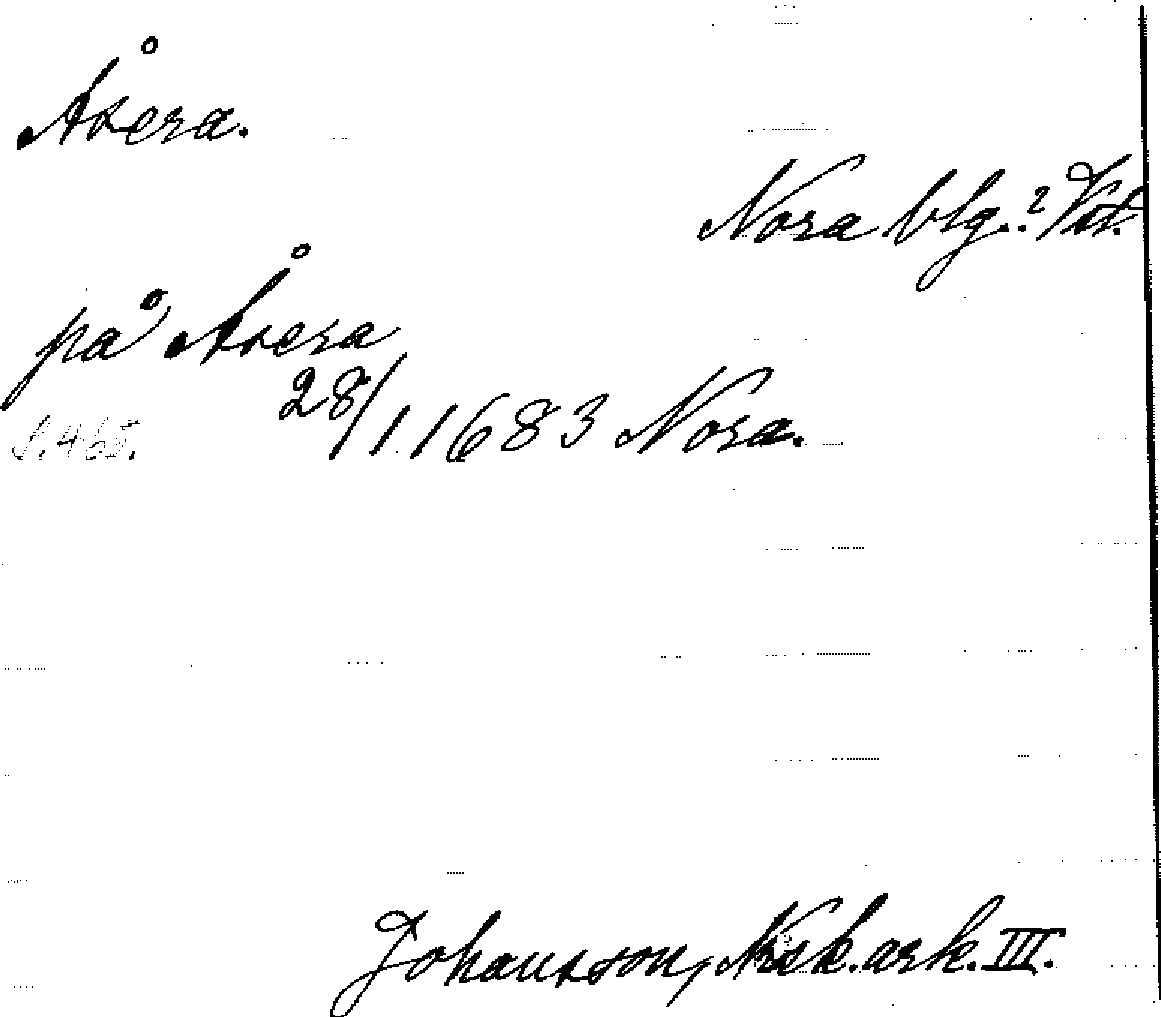 Åsera.
Nora blg.? Vst.
på Åsera
28/1 1683 Nora.
S. 465.
Johansson, Nrsk. ark. III.